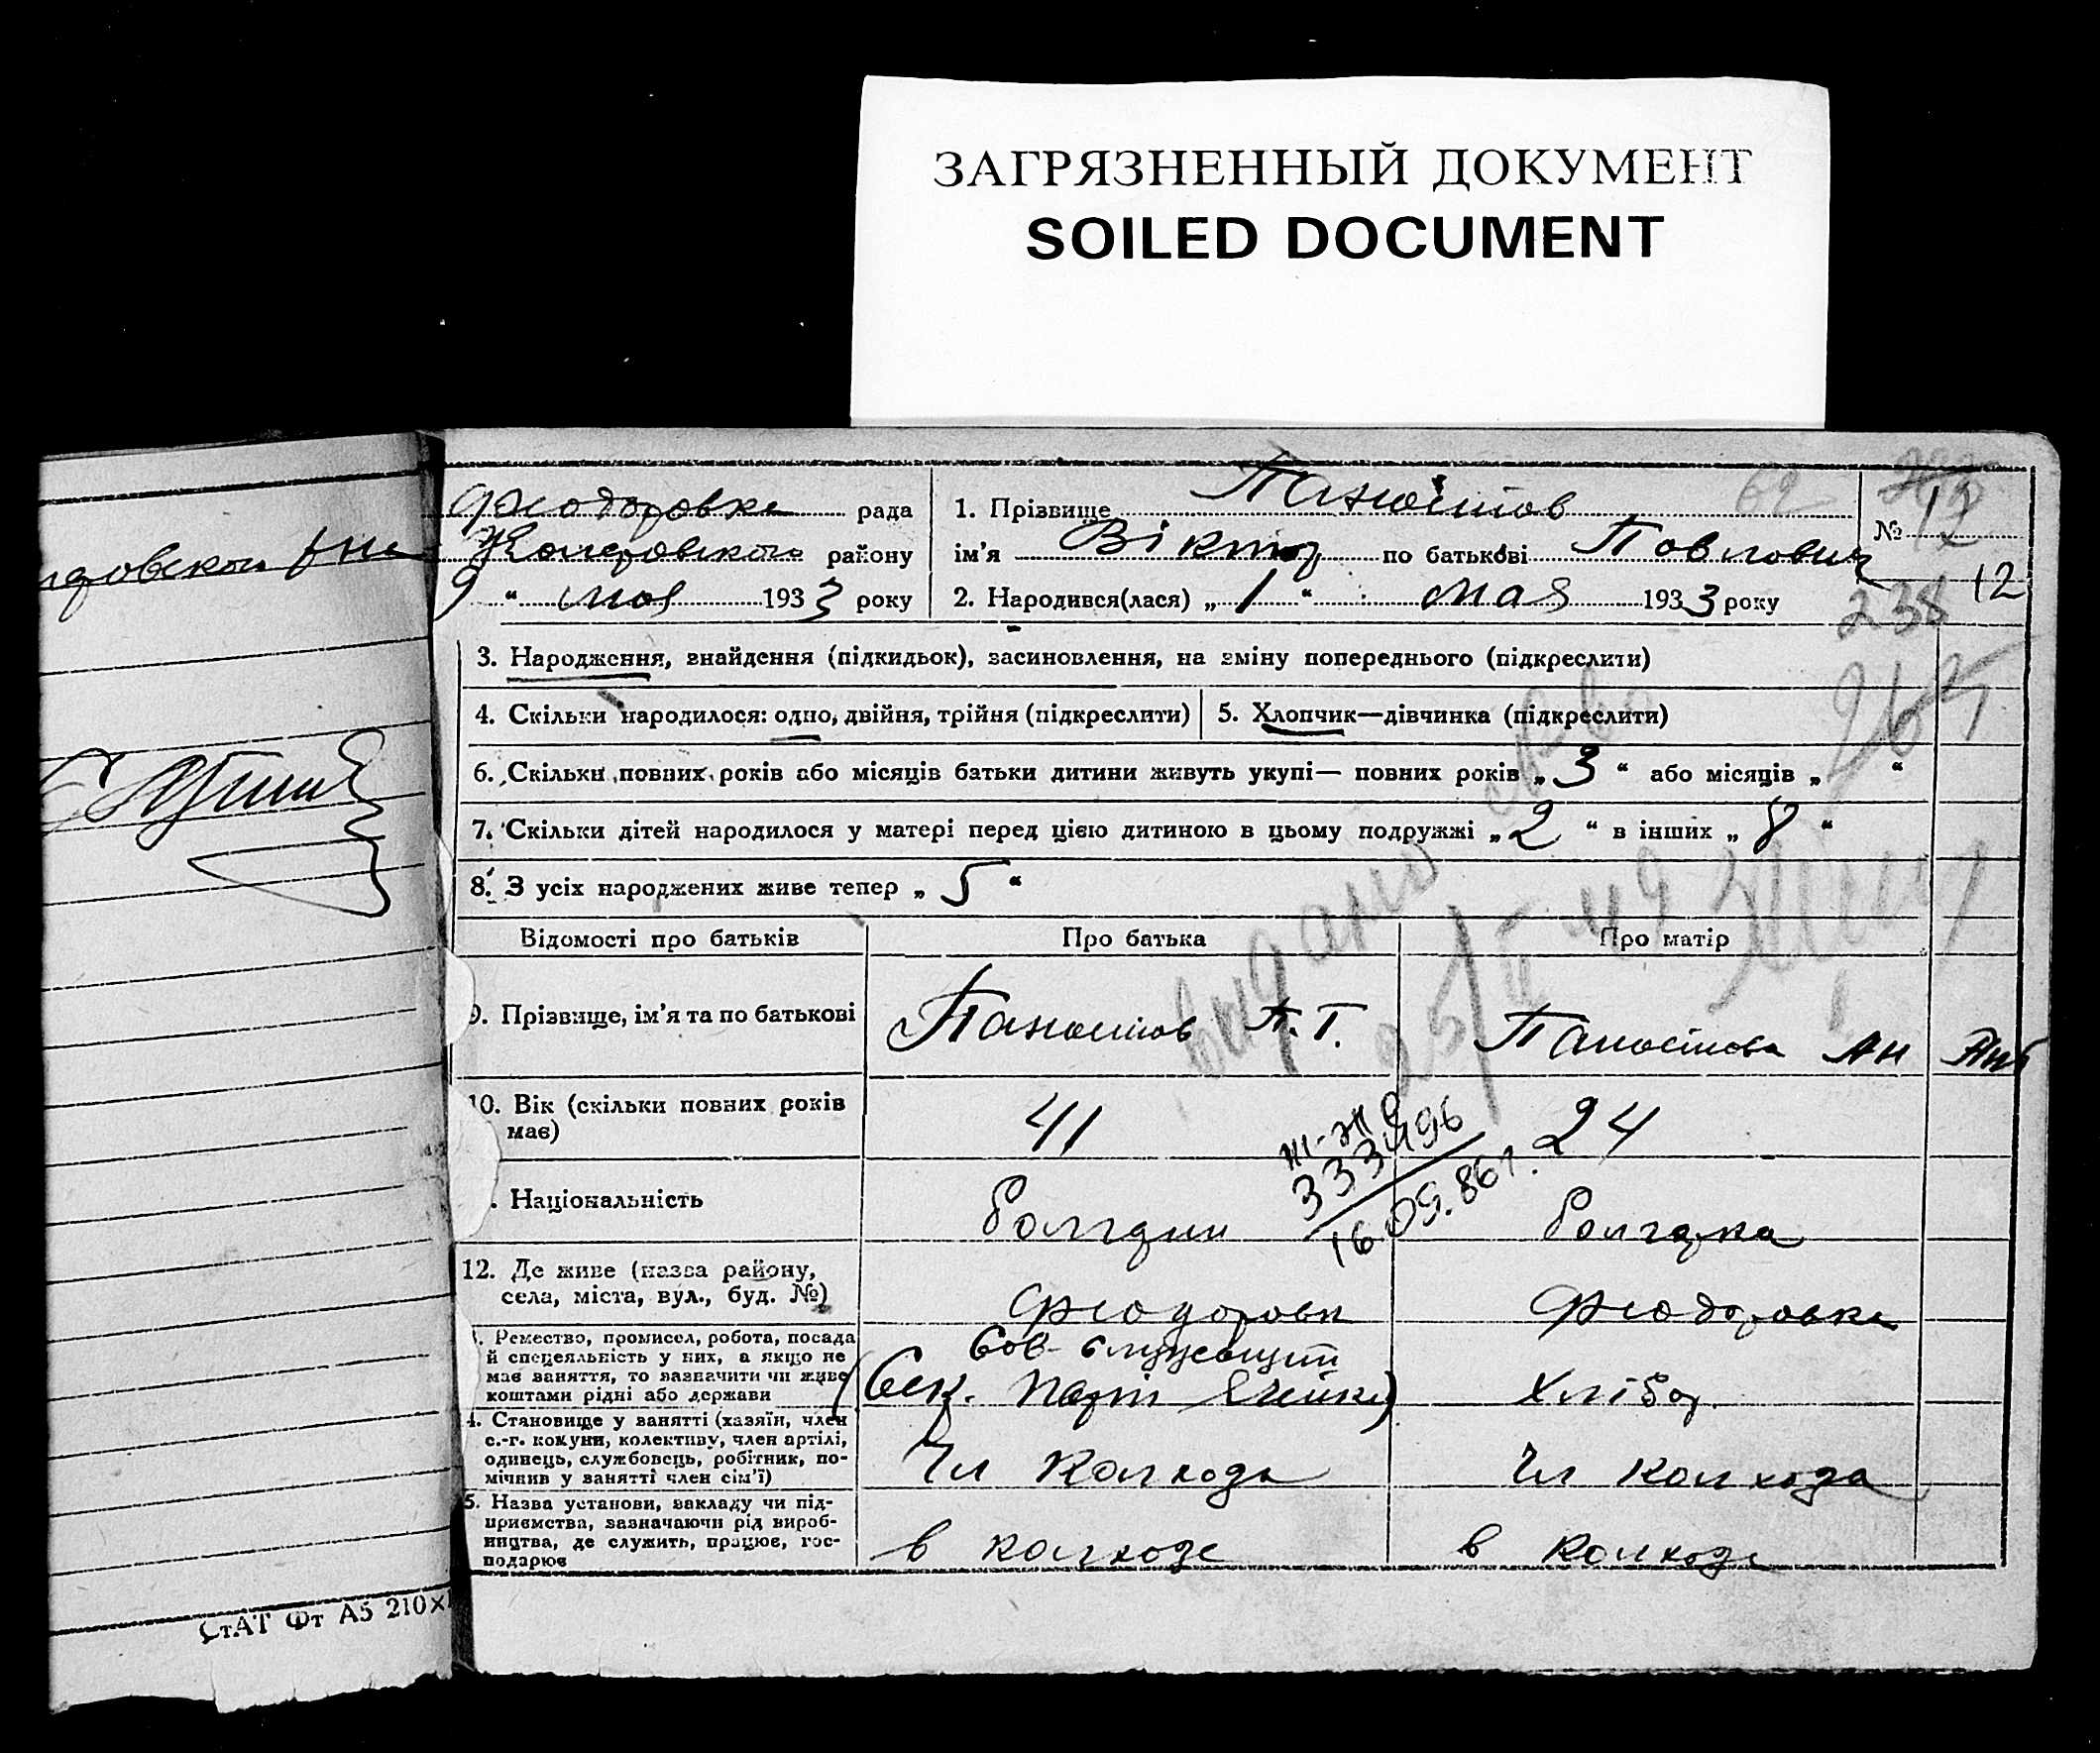 ЗАГРЯЗНЕННЫЙ ДОКУМЕНТ
SOILED DOCUMENT
СтАТ Фт А5 210×
Феодоровке рада
району
9 " мая 1933 року
1. Прізвище Панаіотов
ім'я Віктор по батькові Павлович
2. Народився(лася) „ 1 " мая 1933 року
№ 12
12
62
238
265
3. Народження, знайдення (підкидьок), засиновлення, на зміну попереднього (підкреслити)
4. Скільки народилося: одно, двійня, трійня (підкреслити)
5. Хлопчик—дівчинка (підкреслити)
6. Скільки повних років або місяців батьки дитини живуть укупі— повних років „ 3 " або місяців „ "
7. Скільки дітей народилося у матері перед цією дитиною в цьому подружжі „ 2 " в інших „ "
8. З усіх народжених живе тепер „ 5 "
Відомості про батьків Про батька Про матір
9. Прізвище, ім'я та по батькові Панаіотов П. Г. Панаіотова Ан
10. Вік (скільки повних років 41 24
має)
видано
III-ЖД
333496
16.09.86г.
. Національність болгарин болгарка
12. Де живе (назва району,
села, міста, вул., буд. №) Феодоровк Феодоровке
. Ремество, промисел, робота, посада
й спецеяльність у них, а якщо не
має заняття, то зазначити чи живе
коштами рідні або держави
Сов- служащий
(Сек. Парт Ячейки) Хлібор.
4. Становище у занятті (хазяїн, член
с.-г. комуни, колективу, член артілі,
одинець, службовець, робітник, по-
мічник у занятті член сім'ї)
Чл колхоза Чл колхоза
5. Назва установи, закладу чи під-
приємства, зазначаючи рід вироб-
ництва, де служить, працює, гос-
подарює
в колхозе в колхозе